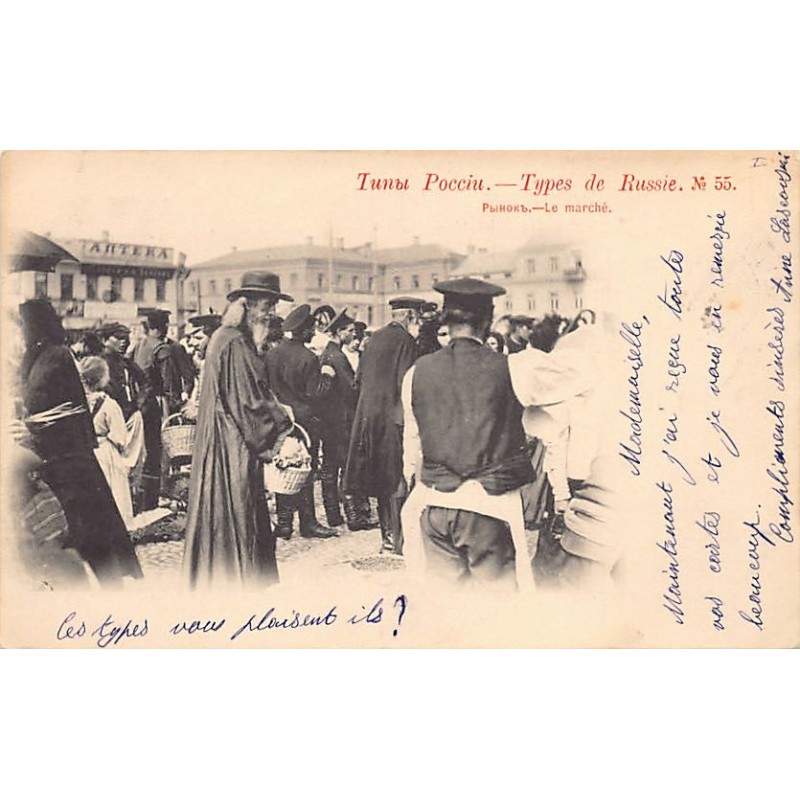 Типы Россіи.—Types de Russie. № 55.
Рынокъ.—Le marché.
АПТЕКА
Mademoiselle,
Maintenant j'ai reçue toutes
vos cartes et je vous en remerzie
beaucoup.
Compliments sinsères Anne
ces types vous plaisent ils?